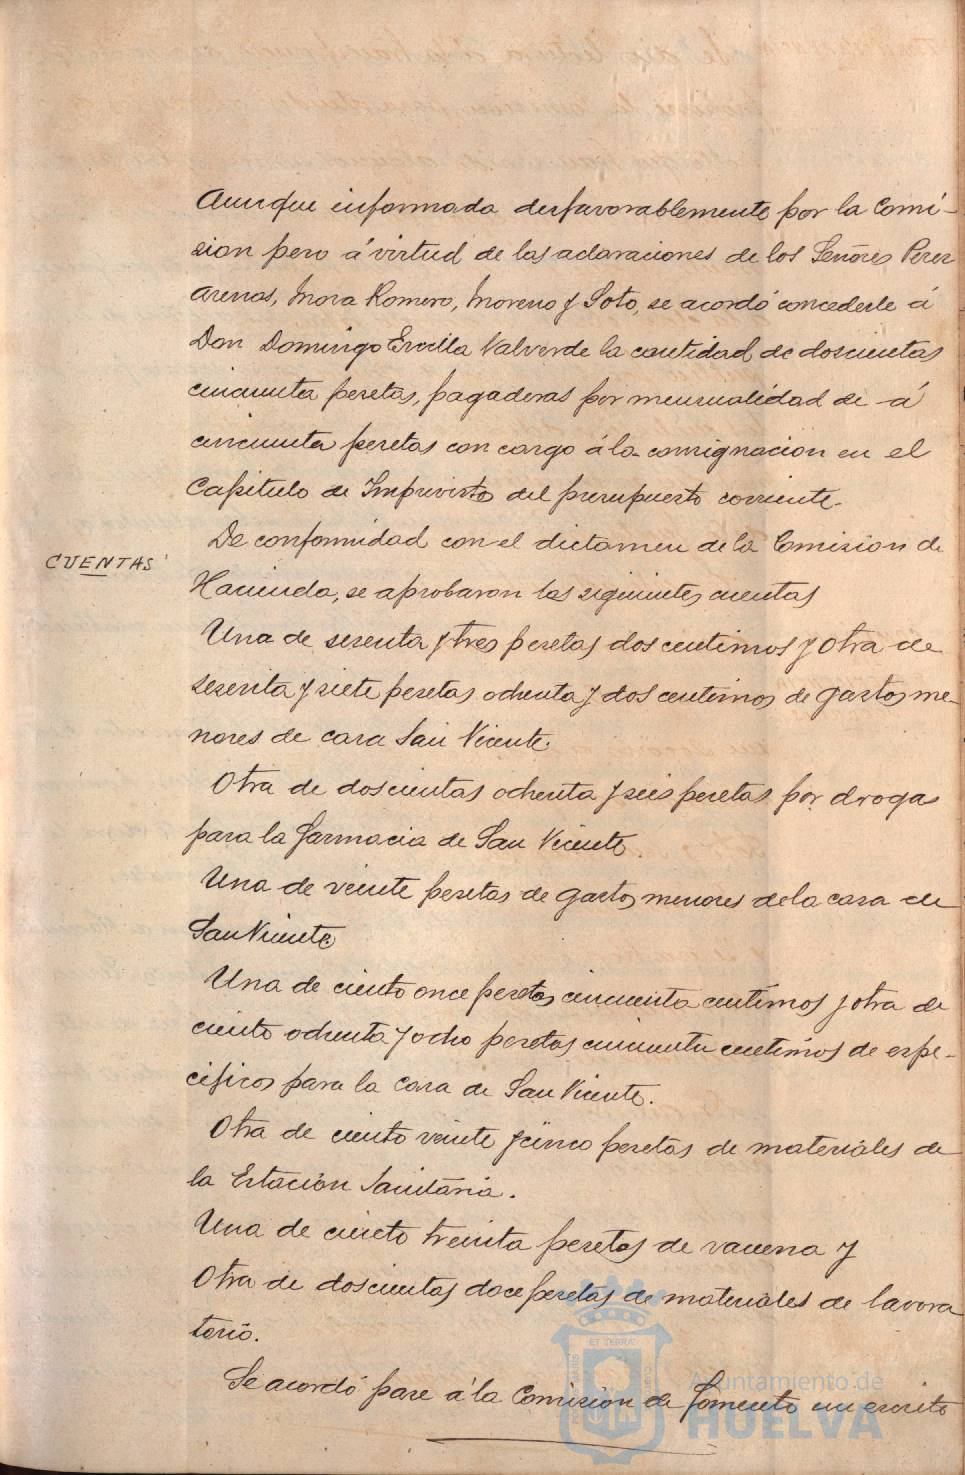 Aunque informada desfavorablemente por la Comi-
sion pero á virtud de las aclaraciones de los Señores Perez
Arenas, Mora Romero, Moreno y Soto, se acordó concederle á
Don Domingo Ercilla Valverde la cantidad de doscientas
cincuenta pesetas, pagaderas por mensualidad de á
cincuenta pesetas con cargo á la consignacion en el
Capitulo de Imprevistos del presupuesto corriente.
CUENTAS
De conformidad con el dictamen de la Comision de
Hacienda, se aprobaron las siguientes cuentas
Una de sesenta y tres pesetas dos centimos y otra de
sesenta y siete pesetas ochenta y dos centimos de gastos me-
nores de casa San Vicente.
Otra de doscientas ochenta y seis pesetas por drogas
para la farmacia de San Vicente.
Una de veinte pesetas de gastos menores de la casa de
San Vicente
Una de ciento once pesetas cincuenta centimos y otra de
ciento ochenta y ocho pesetas cincuenta centimos de espe-
cificos para la casa de San Vicente.
Otra de ciento veinte y cinco pesetas de materiales de
la Estación Sanitaria.
Una de ciento treinta pesetas de vacuna y
Otra de doscientas doce pesetas de materiales de lavora
torio.
Se acordó pase á la Comision de Fomento un escrito
Ayuntamiento de
HUELVA